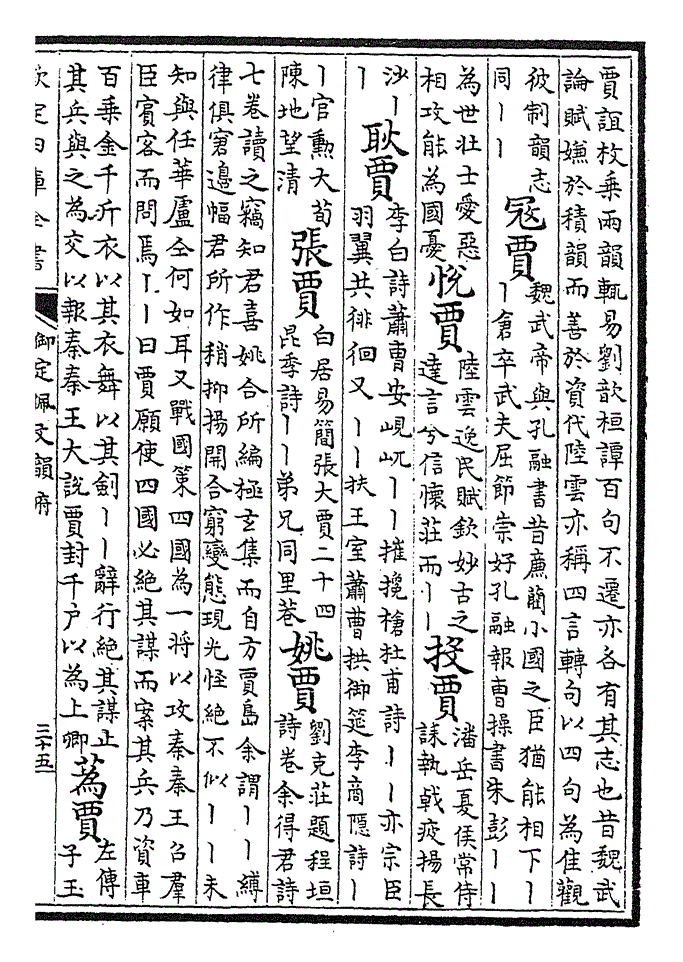 賈誼枚乘兩韻輒易劉歆桓譚百句不遷亦各有其志也昔魏武
論賦嫌於積韻而善於資代陸雲亦稱四言轉句以四句為佳觀
彼制韻志
同丨丨
寇賈
魏武帝與孔融書昔廉藺小國之臣猶能相下丨
丨倉卒武夫屈節崇好孔融報曹操書朱彭丨丨
為世壯士愛惡
相攻能為國憂
悅賈
陸雲逸民賦欽妙古之
達言兮信懷莊而丨丨
投賈
潘岳夏侯常侍
誄執戟疲揚長
沙丨
丨
耿賈
李白詩蕭曹安峴屼丨丨摧攙槍杜甫詩丨丨亦宗臣
羽翼共徘徊又丨丨扶王室蕭曹拱御筵李商隱詩丨
丨官勲大荀
陳地望清
張賈
白居易簡張大賈二十四
昆季詩丨丨弟兄同里巷
姚賈
劉克莊題程垣
詩卷余得君詩
七卷讀之竊知君喜姚合所編極玄集而自方賈島余謂丨丨縛
律俱窘邊幅君所作稍抑揚開合窮變態現光怪絶不似丨丨未
知與任華盧仝何如耳又戰國策四國為一將以攻秦秦王召羣
臣賓客而問焉丨丨曰賈願使四國必絶其謀而案其兵乃資車
百乘金千斤衣以其衣舞以其劍丨丨辭行絶其謀止
其兵與之為交以報秦秦王大說賈封千户以為上卿
蒍賈
左傳
子玉
欽定四庫全書
御定佩文韻府
三十五